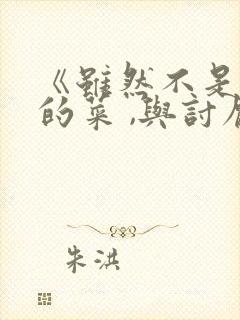 《雖然不是
的菜,與討
朱洪